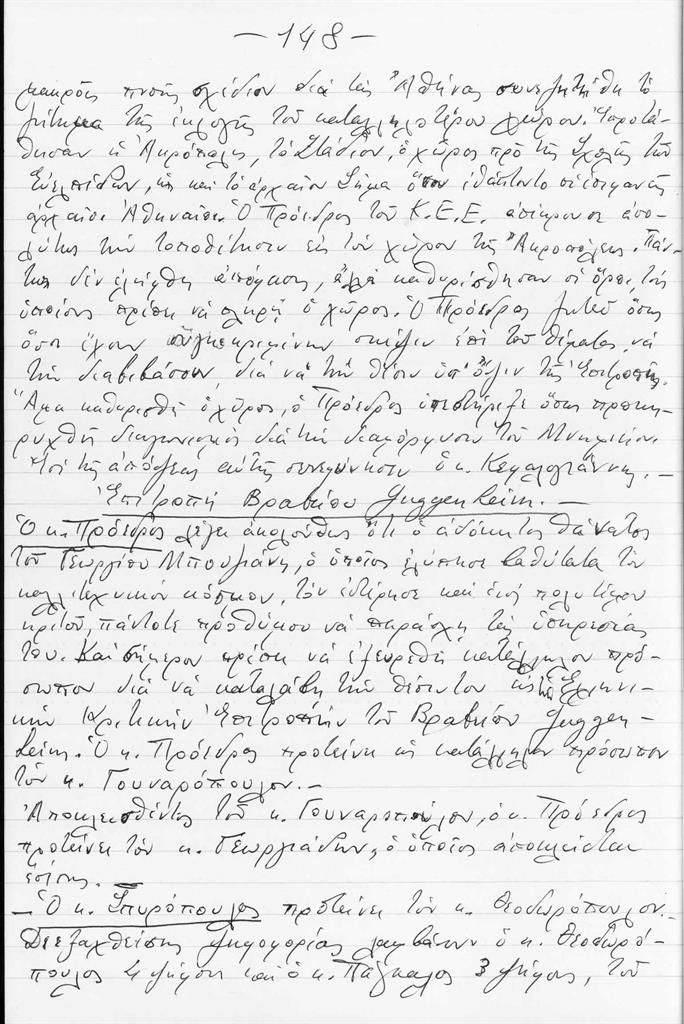 — 148 —
μακρᾶς πνοῆς σχέδιον διά τάς Ἀθήνας συνεζητήθη τό
ζήτημα τῆς ἐκλογῆς τοῦ καταλληλοτέρου χώρου. Ἐπροτά-
θησαν ἡ Ἀκρόπολις, τό Στάδιον, ὁ χῶρος πρό τῆς Σχολῆς τῶν
Εὐελπίδων, ὡς καί τό ἀρχαῖον Σῆμα ὅπου ἐθάπτοντο οἱ ἐπιφανεῖς
ἀρχαῖοι Ἀθηναῖοι. Ὁ Πρόεδρος τοῦ Κ.Ε.Ε. ἀπέκρουσε ἀπο-
λύτως τήν τοποθέτησιν εἰς τόν χῶρον τῆς Ἀκροπόλεως. Πάν-
τως δέν ἐλήφθη ἀπόφασις, ἀλλά καθωρίσθησαν οἱ ὅροι, τούς
ὁποίους πρέπει νά πληρῇ ὁ χῶρος. Ὁ Πρόεδρος ζητεῖ ὅπως
ὅσοι ἔχουν συγκεκριμένην σκέψιν ἐπί τοῦ θέματος, νά
τήν διαβιβάσουν διά νά τήν θέσῃ ὑπ' ὄψιν τῆς Ἐπιτροπῆς.
Ἅμα καθορισθῇ ὁ χῶρος, ὁ Πρόεδρος ὑπεστήριξε ὅπως προκη-
ρυχθῇ διαγωνισμός διά τήν διαμόρφωσιν τοῦ Μνημείου.
Ἐπί τῆς ἀπόψεως αὐτῆς συνεφώνησεν ὁ κ. Κεφαλογιάννης. —
Ἐπιτροπή Βραβείου Guggenheim. —
Ὁ κ. Πρόεδρος λέγει ἀκολούθως ὅτι ὁ ἀδόκητος θάνατος
τοῦ Γεωργίου Μπουζιάνη, ὁ ὁποῖος ἐλύπησε βαθύτατα τόν
καλλιτεχνικόν κόσμον, τόν ἐστέρησε καί ἑνός πολυτίμου
κριτοῦ, πάντοτε προθύμου νά παράσχῃ τάς ὑπηρεσίας
του. Καί σήμερον πρέπει νά ἐξευρεθῇ κατάλληλον πρό-
σωπον διά νά καταλάβῃ τήν θέσιν του εἰς τήν Ἑλληνι-
κήν Κριτικήν Ἐπιτροπήν τοῦ Βραβείου Guggen-
heim. Ὁ κ. Πρόεδρος προτείνει ὡς κατάλληλον πρόσωπον
τόν κ. Γουναρόπουλον. —
Ἀποκλεισθέντος τοῦ κ. Γουναροπούλου, ὁ κ. Πρόεδρος
προτείνει τόν κ. Γεωργιάδην, ὁ ὁποῖος ἀποκλείεται
ἐπίσης.
— Ὁ κ. Σπυρόπουλος προτείνει τόν κ. Θεοδωρόπουλον. —
Διεξαχθείσης ψηφοφορίας λαμβάνουν ὁ κ. Θεοδωρό-
πουλος 4 ψήφους καί ὁ κ. Πάγκαλος 3 ψήφους, τοῦ